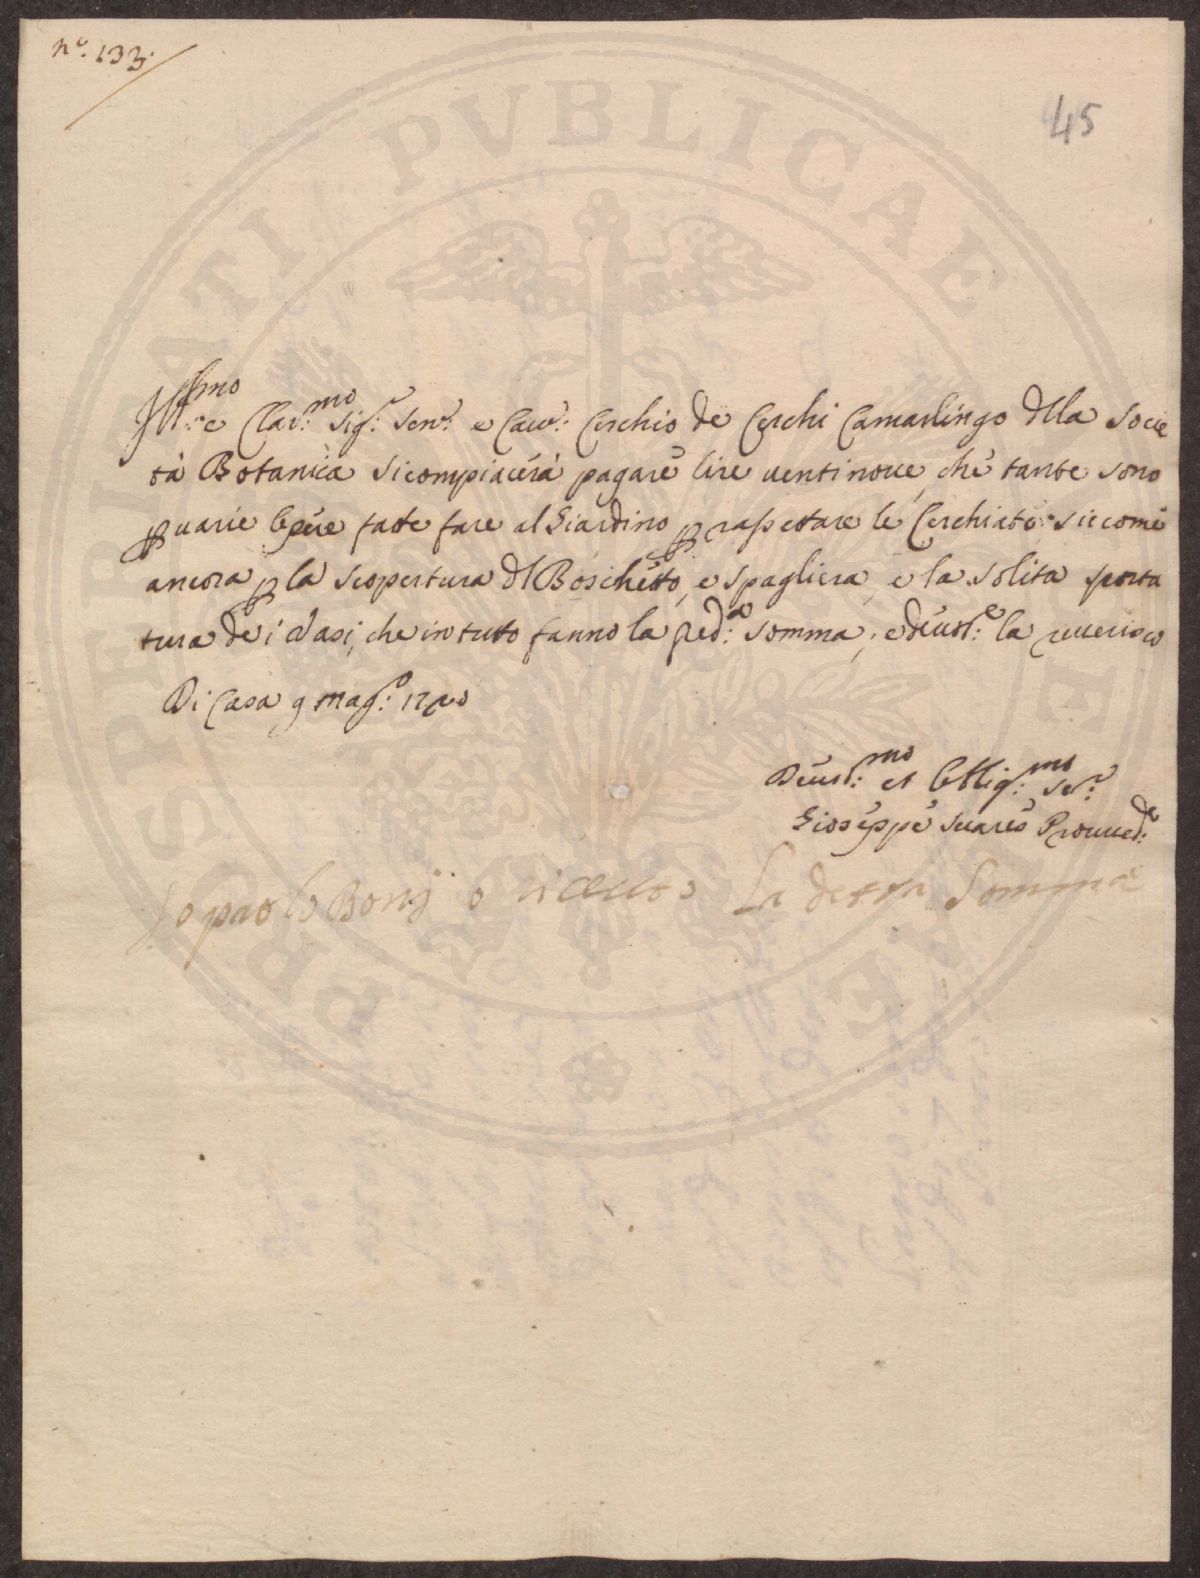 n.º 133.
45
Ill.mo e Clar.mo Sig.r Sen.r e Cav.r Cerchio de Cerchi Camarlingo della Socie
tà Botanica si compiacerà pagare lire ventinove, che tante sono
p varie opere fatte fare al Giardino p rassettare le Cerchiate, siccome
ancora p la scopertura del Boschetto, e spagliera, e la solita sporta
tura de i Vasi, che in tutto fanno la pred.a somma, e devot.e la reverisco
Di Casa 9 Mag.o
Devot.mo et Obblig.mo Se.r
Gioseppe Suares Provved.re
Io paolo Bonij o riceuto La detta Somma
PROSPERITATI PVBLICAE